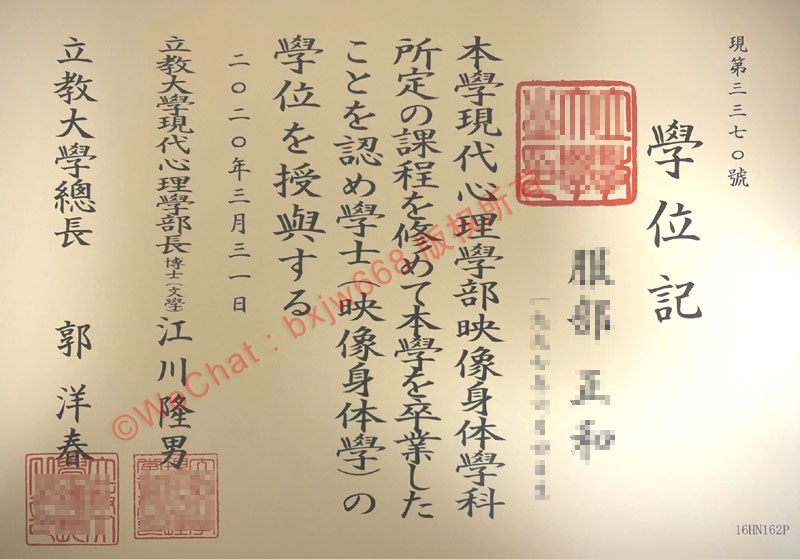 現第三三七〇號
學位記
服部 正和
本學現代心理學部映像身体學科
所定の課程を修めて本學を卒業した
ことを認め學士(映像身体學)の
學位を授與する
二〇二〇年三月三一日
立教大學現代心理學部長 博士(文學) 江川隆男
立教大學總長 郭洋春
©WeChat：bxjw668 版视所有
16HN162P